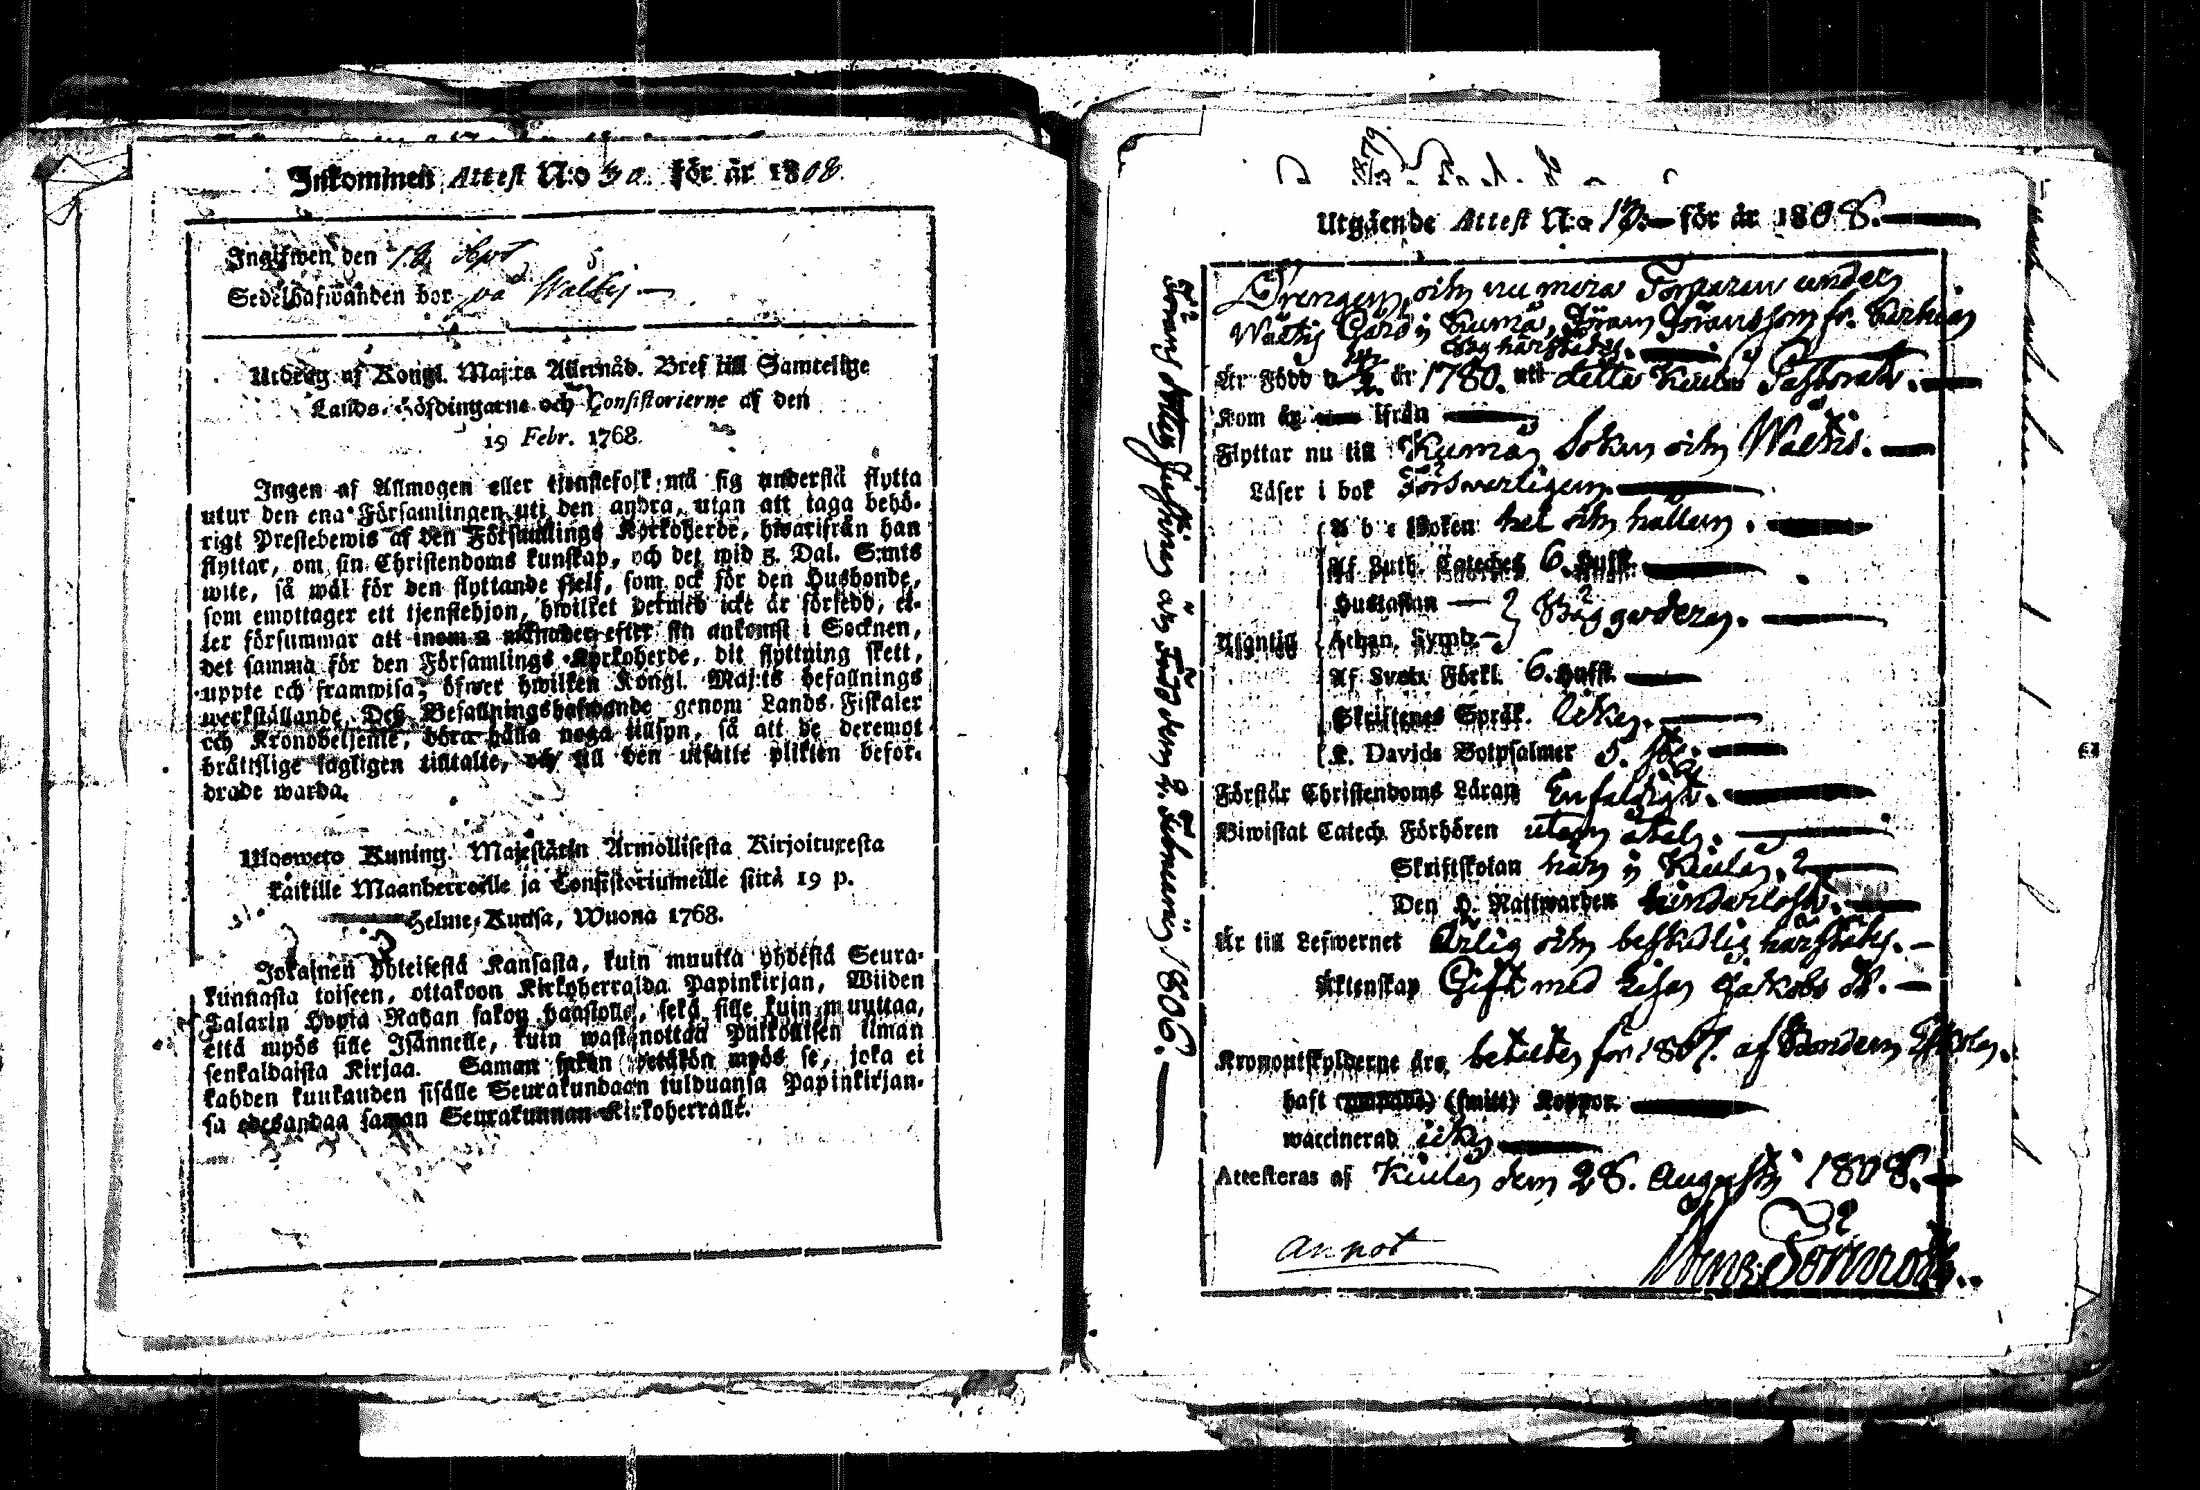 Inkommen Attest N:o 30. för år 1808.
Ingifwen den 12 Sept
Sedelhafwanden bor på Waltis
Utdrag af Kongl. Maj:ts Allernåd. Bref till Samtelige
Lands-Höfdingarne och Consistorierne af den
19 Febr. 1768.
Ingen af Allmogen eller tjenstefolk må sig understå flytta
utur den ena Församlingen uti den andra, utan att taga behö-
rigt Prestebewis af den Församlings Kyrkoherde, hwarifrån han
flyttar, om sin Christendoms kunskap, och det wid 5. Dal. S:mts
wite, så wäl för den flyttande sjelf, som ock för den Husbonde,
som emottager ett tjenstehjon, hwilket dermed icke är försedd, el-
ler försummar att inom 2 månader efter sin ankomst i Socknen,
det samma för den Församlings Kyrkoherde, dit flyttning skett,
uppte och framwisa; öfwer hwilken Kongl. Maj:ts befallnings
werkställande, Deß Befallningshafwande genom Lands-Fiskaler
och Kronobetjente, böra hålla noga tillsyn, så att de deremot
bråttslige lagligen tilltalte, och till den utsatte plikten befor-
drade warda.
Ulosweto Kuning. Majestätin Armollisesta Kirjoituxesta
kaikille Maanherroille ja Consistoriumeille siitä 19 p.
Helme-Kuusa, Wuona 1768.
Jokainen Yhteisestä Kansasta, kuin muutta yhdestä Seura-
kunnasta toiseen, ottakoon Kirkoherralda Papinkirjan, Wiiden
Talarin Hopia Rahan sakon haastolla, sekä sille kuin muuttaa,
että myös sille Isännelle, kuin wastanottaa Palkollisen ilman
senkaldaista Kirjaa. Saman sakon wetäkön myös se, joka ei
kahden kuukauden sisälle Seurakundaan tulduansa Papinkirjan-
sa edesandaa saman Seurakunnan Kirkoherralle.
Utgående Attest N:o 13. för år 1808.
Drengen, och nu mera Torparen under
Waltis Gård i Kumå, Jöran Jöransson fr.
Är Född d. år 1780. uti detta Kiulo Pastorat.
Kom år ifrån
Flyttar nu till Kumå Sokn och Waltis.
Läser i bok Försvarligen.
A b c Boken hel och hållen.
Af Luth. Cateches 6. Hufst.
Hustaflan
Athan. Symb. Bäggedera.
Utantill
Af Sveb. Förkl. 6. Hufst.
Skriftenes Språk. Icke.
K. Davids Botpsalmer 5. st.
Förstår Christendoms Läran Enfaldigt.
Biwistat Catech. Förhören utan
Skriftskolan här i Kiulo.
Den H. Nattwarden hinderlöst.
Är till Lefwernet Ärlig och beskedlig härstädes.
Äktenskap Gift med Lisa Jakobs dr.
Kronoutskylderne äro betalte för 1807. af Bonden
haft (smitt) Koppor.
waccinerad icke
Attesteras af Kiulo dem 28. Augusti 1808.
Annot
Jörans Attest är Född dem 2. Februarii 1806.